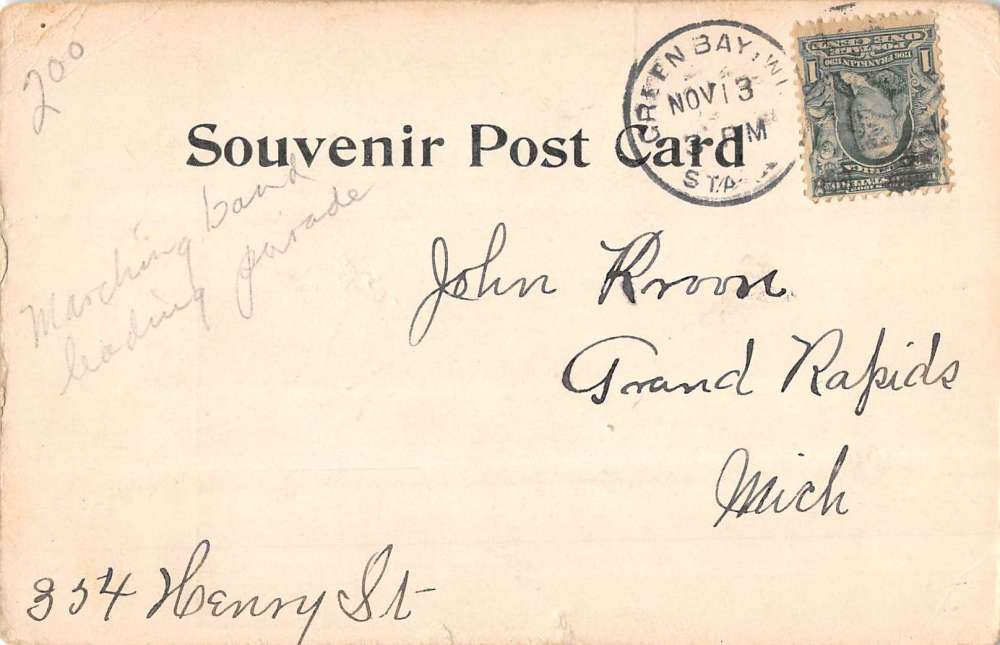 200
Souvenir Post Card
GREEN BAY, WI
NOV 13
3 PM
STA
POSTAGE
ONE CENT
1706 FRANKLIN 1790
1 1
Marching band
leading parade
John Kroon
Grand Rapids
Mich
354 Henry St